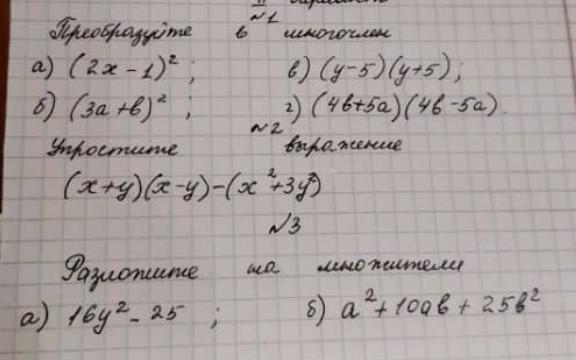 №1
Преобразуйте в многочлен
а) (2x - 1)² ; в) (y-5)(y+5);
б) (3a + b)² ; г) (4b+5a)(4b-5a).
№2
Упростите выражение
(x+y)(x-y)-(x²+3y²)
№3
Разложите на множители
а) 16y² - 25 ; б) a² + 10ab + 25b²